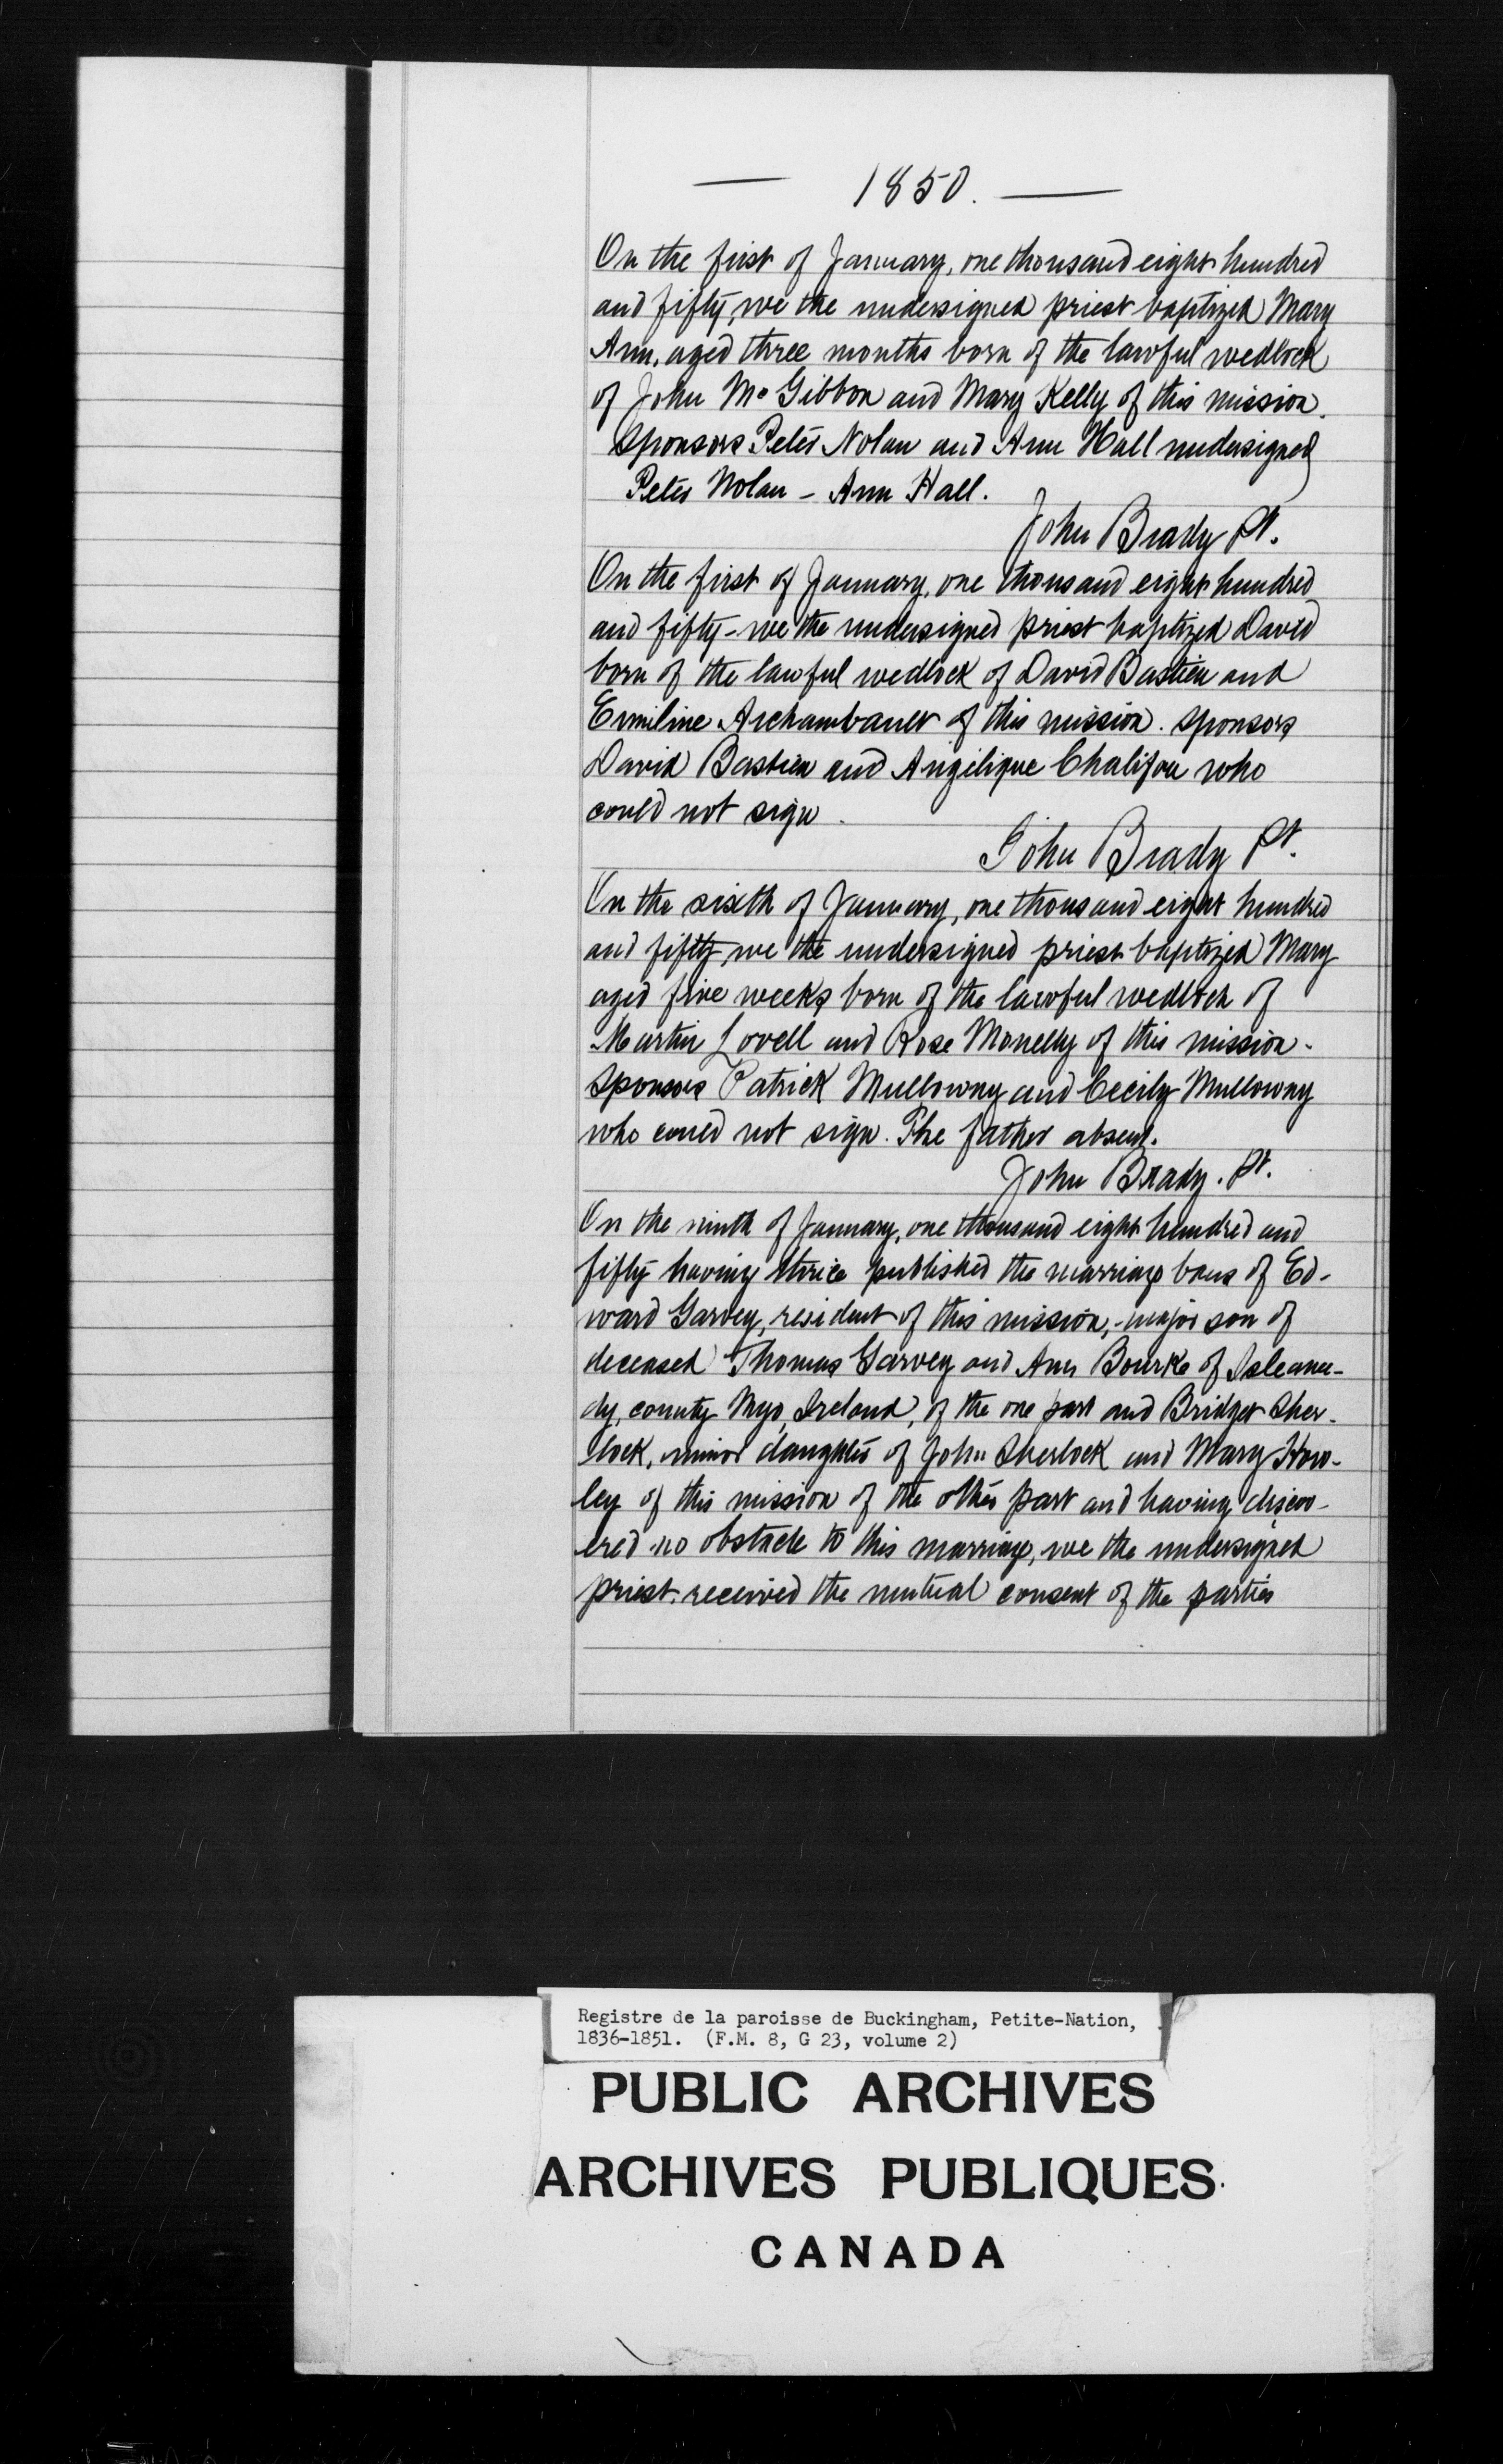 — 1850. —
On the first of January, one thousand eight hundred
and fifty, we the undersigned priest baptized Mary
Ann, aged three months born of the lawful wedlock
of John Mc Gibbon and Mary Kelly of this mission.
Sponsors Peter Nolan and Ann Hall undersigned
Peter Nolan - Ann Hall.
John Brady Pt.
On the first of January, one thousand eight hundred
and fifty - we the undersigned priest baptized David
born of the lawful wedlock of David Bastien and
Ermiline Archambault of this mission. Sponsors
David Bastien and Angelique Chalifou who
could not sign.
John Brady Pt.
On the sixth of January, one thousand eight hundred
and fifty, we the undersigned priest baptized Mary
aged five weeks born of the lawful wedlock of
Martin Lovell and Rose Monelly of this mission.
Sponsors Patrick Mullowny and Cecily Mullowny
who could not sign. The father absent.
John Brady. Pt.
On the ninth of January, one thousand eight hundred and
fifty having thrice published the marriage bans of Ed-
ward Garvey, resident of this mission, - major son of
deceased Thomas Garvey and Ann Bourke of Isleanee-
dy, county Myo, Ireland, of the one part and Bridget Sher-
lock, minor daughter of John Sherlock and Mary How-
ley of this mission of the other part and having discov-
ered no obstacle to this marriage, we the undersigned
priest received the mutual consent of the parties
Registre de la paroisse de Buckingham, Petite-Nation,
1836-1851. (F.M. 8, G 23, volume 2)
PUBLIC ARCHIVES
ARCHIVES PUBLIQUES
CANADA